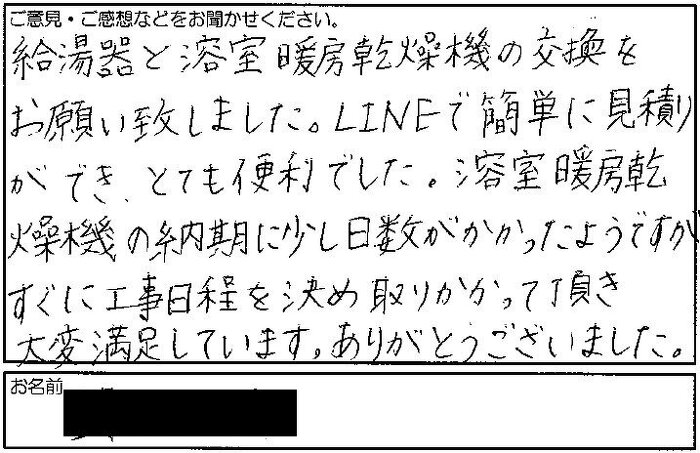 ご意見・ご感想などをお聞かせください。
給湯器と浴室暖房乾燥機の交換を
お願い致しました。LINEで簡単に見積り
ができ、とても便利でした。浴室暖房乾
燥機の納期に少し日数がかかったようですが
すぐに工事日程を決め取りかかって頂き
大変満足しています。ありがとうございました。
お名前